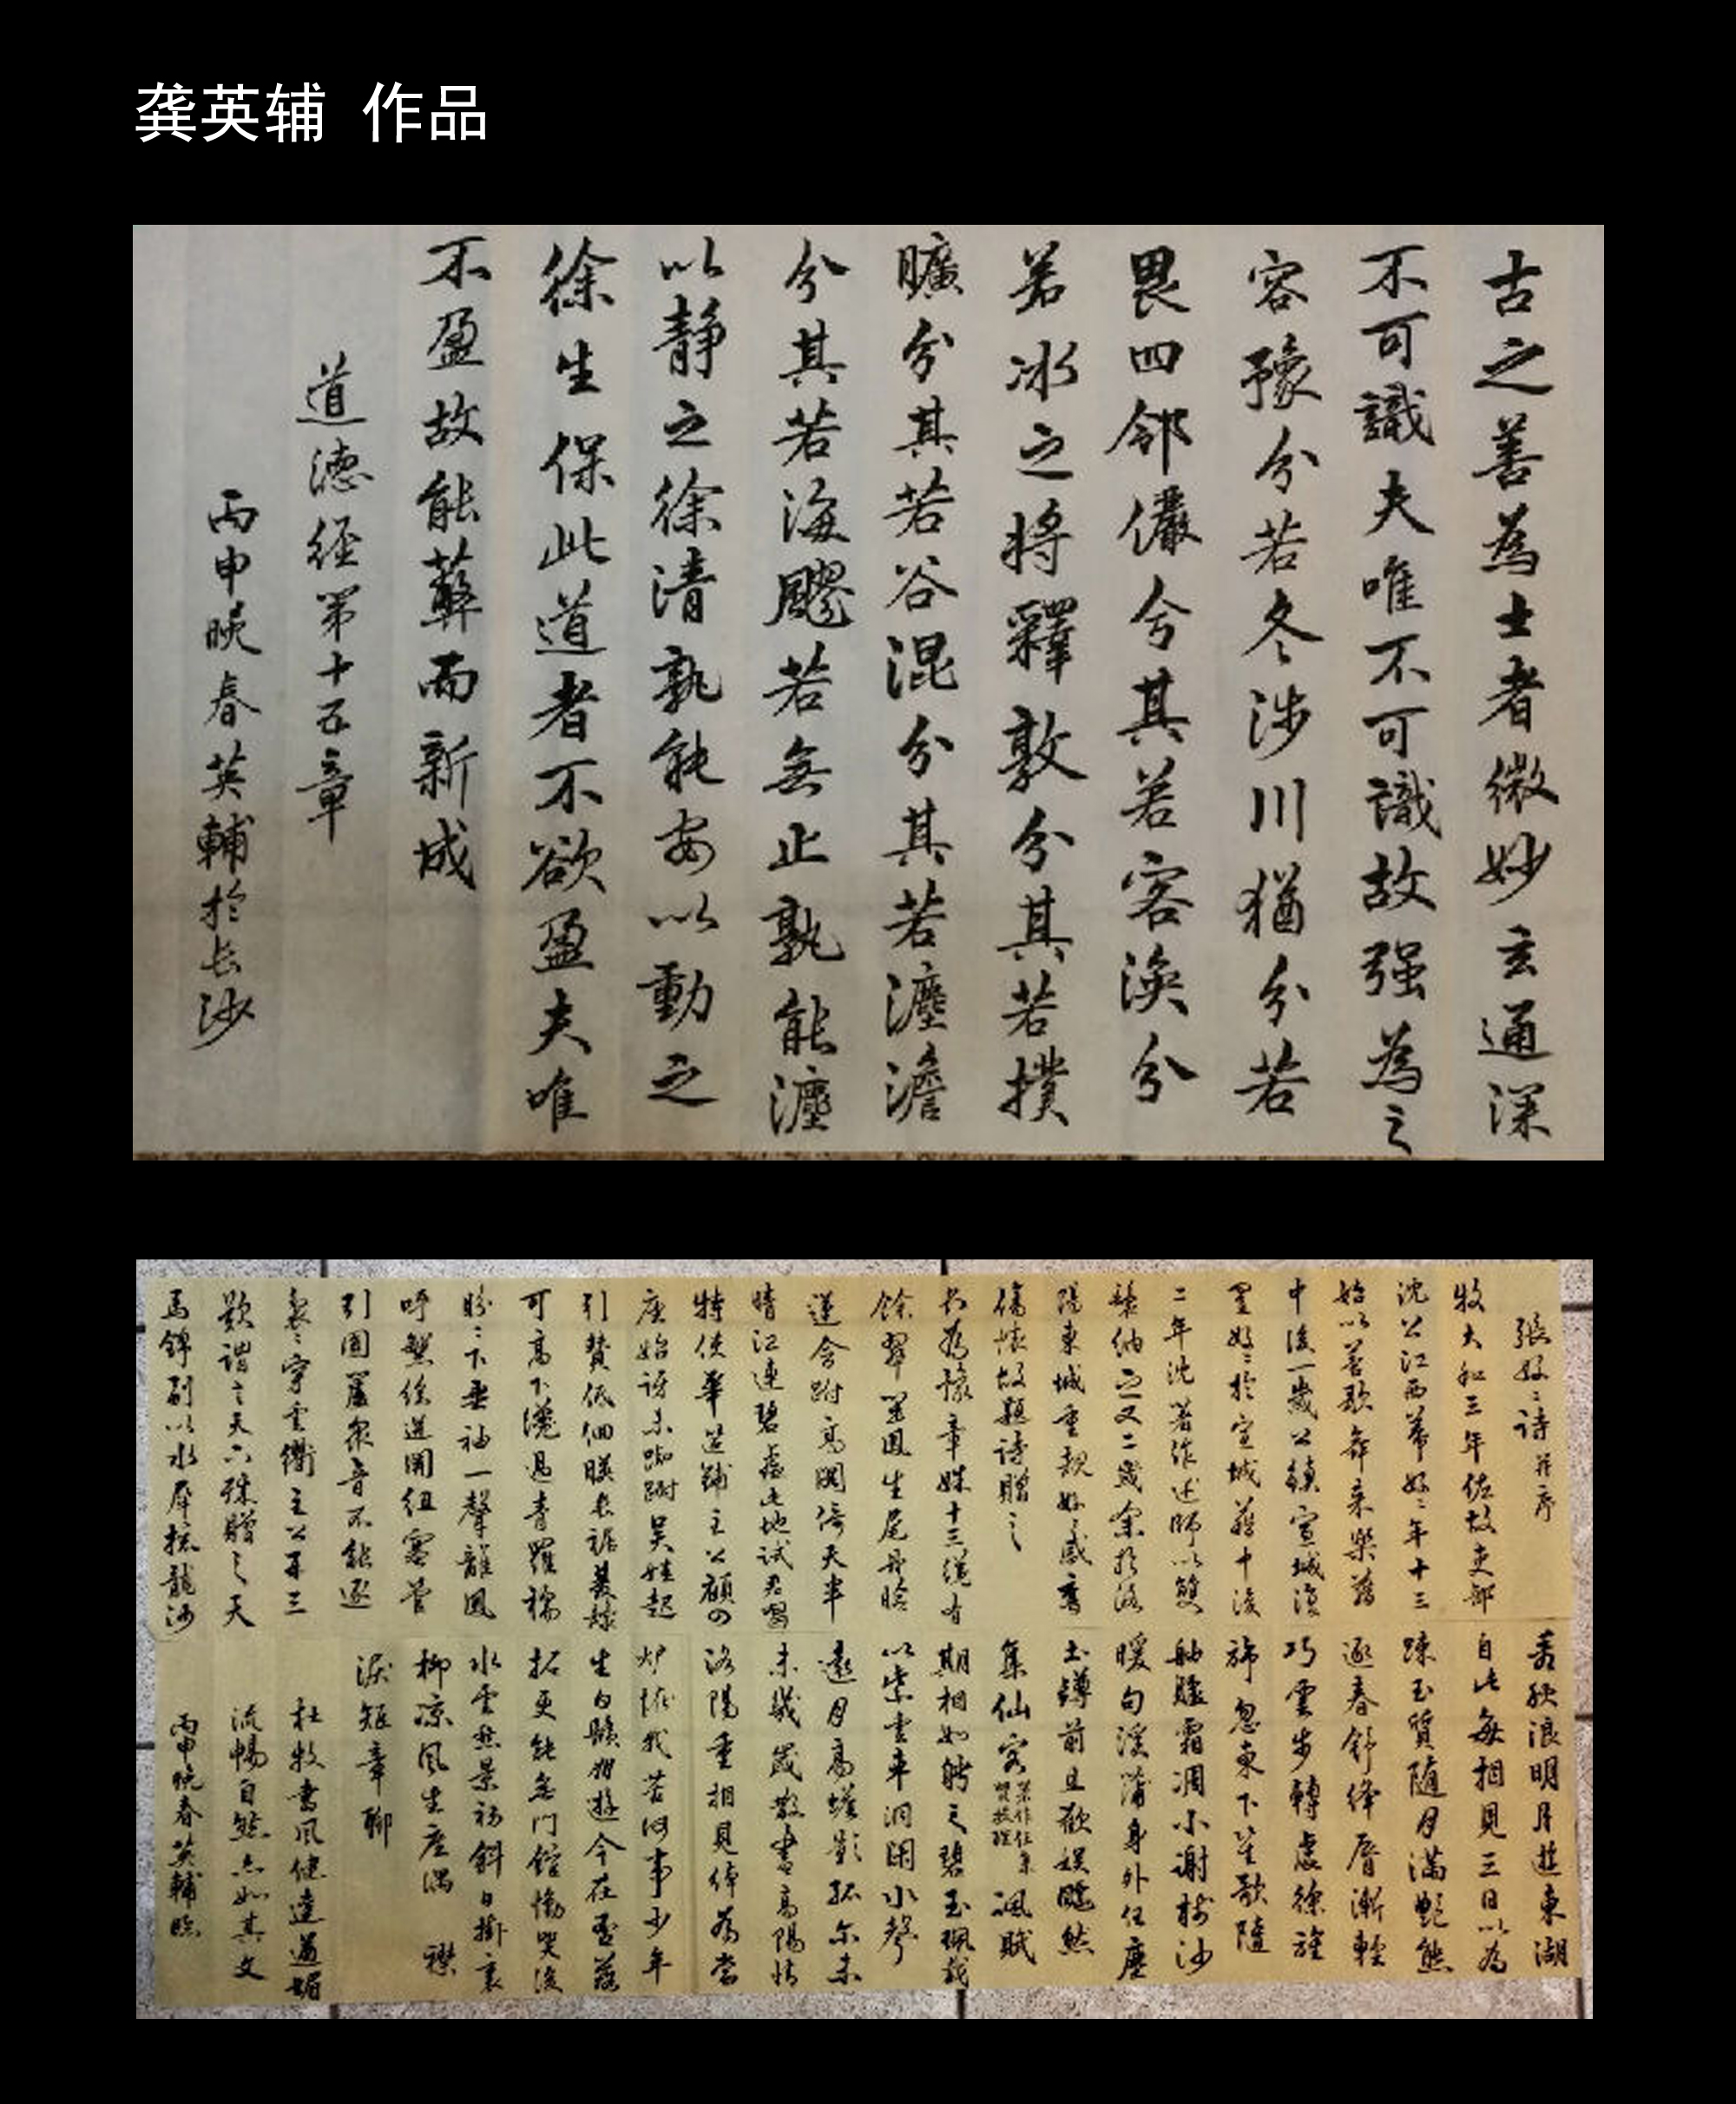 龚英辅 作品
古之善為士者微妙玄通深
不可識夫唯不可識故强為之
容豫兮若冬涉川猶兮若
畏四邻儼兮其若客渙兮
若冰之將釋敦兮其若撲
曠兮其若谷混兮其若濁澹
兮其若海飂若無止孰能濁
以静之徐清孰能安以動之
徐生保此道者不欲盈夫唯
不盈故能蔽而新成
道德经第十五章
丙申暎春英輔於长沙
張好好詩并序
牧大和三年佐故吏部
沈公江西幕好好年十三
始以善歌舞來樂籍
中後一歲公鎮宣城復
置好好於宣城籍中後
二年沈著作述師以雙
鬟納之又二歲余於洛
陽東城重覩好好感舊
傷懷故題詩贈之
君為豫章姝十三纔有
餘翠茁鳳生尾丹臉
蓮含跗高閣倚天半
晴江連碧虛此地試君唱
特使華筵鋪主公顧四
座始訝來踟躕吳娃起
引贊低佪暎長裾雙鬟
可高下纔過青羅襦
盼盼下垂袖一聲離鳳
呼繁絃迸關紐塞管
引圓蘆衆音不能逐
裊裊穿雲衢主公再三
歎謂之天下殊贈之天
馬錦副以水犀梳龍沙
看秋浪明月遊東湖
自此每相見三日以為
踈玉質隨月滿艷態
逐春舒絳脣漸輕
巧雲步轉虛徐旌
旆忽東下笙歌隨
舳艫霜凋小謝樹沙
暖句溪蒲身外任塵
土罇前且歡娛飄然
集仙客著作任集賢校理諷賦
期相如聘之碧玉珮載
以紫雲車洞閉水聲
遠月高蟾影孤尔来
未幾歲散盡高陽徒
洛陽重相見婥為當
壚怪我苦何事少年
生白鬚朋遊今在否落
拓更能無門館慟哭後
水雲愁景初斜日掛衰
柳凉風生座隅 襟
淚短章聊
杜牧書風健遒媚
流暢自然亦如其文
丙申晚春英輔臨